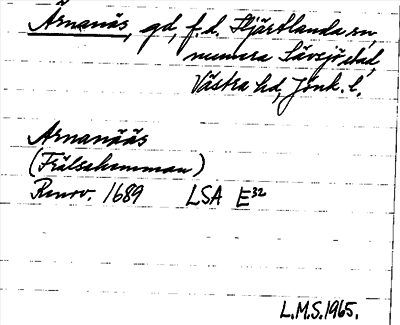 Årnanäs, gd, f.d. Hjärtlanda sn,
numera Sävsjö stad,
Västra hd, Jönk. l.
Arnanääs
(Frälsehemman)
Renov. 1689 LSA E32
L.M.S. 1965.